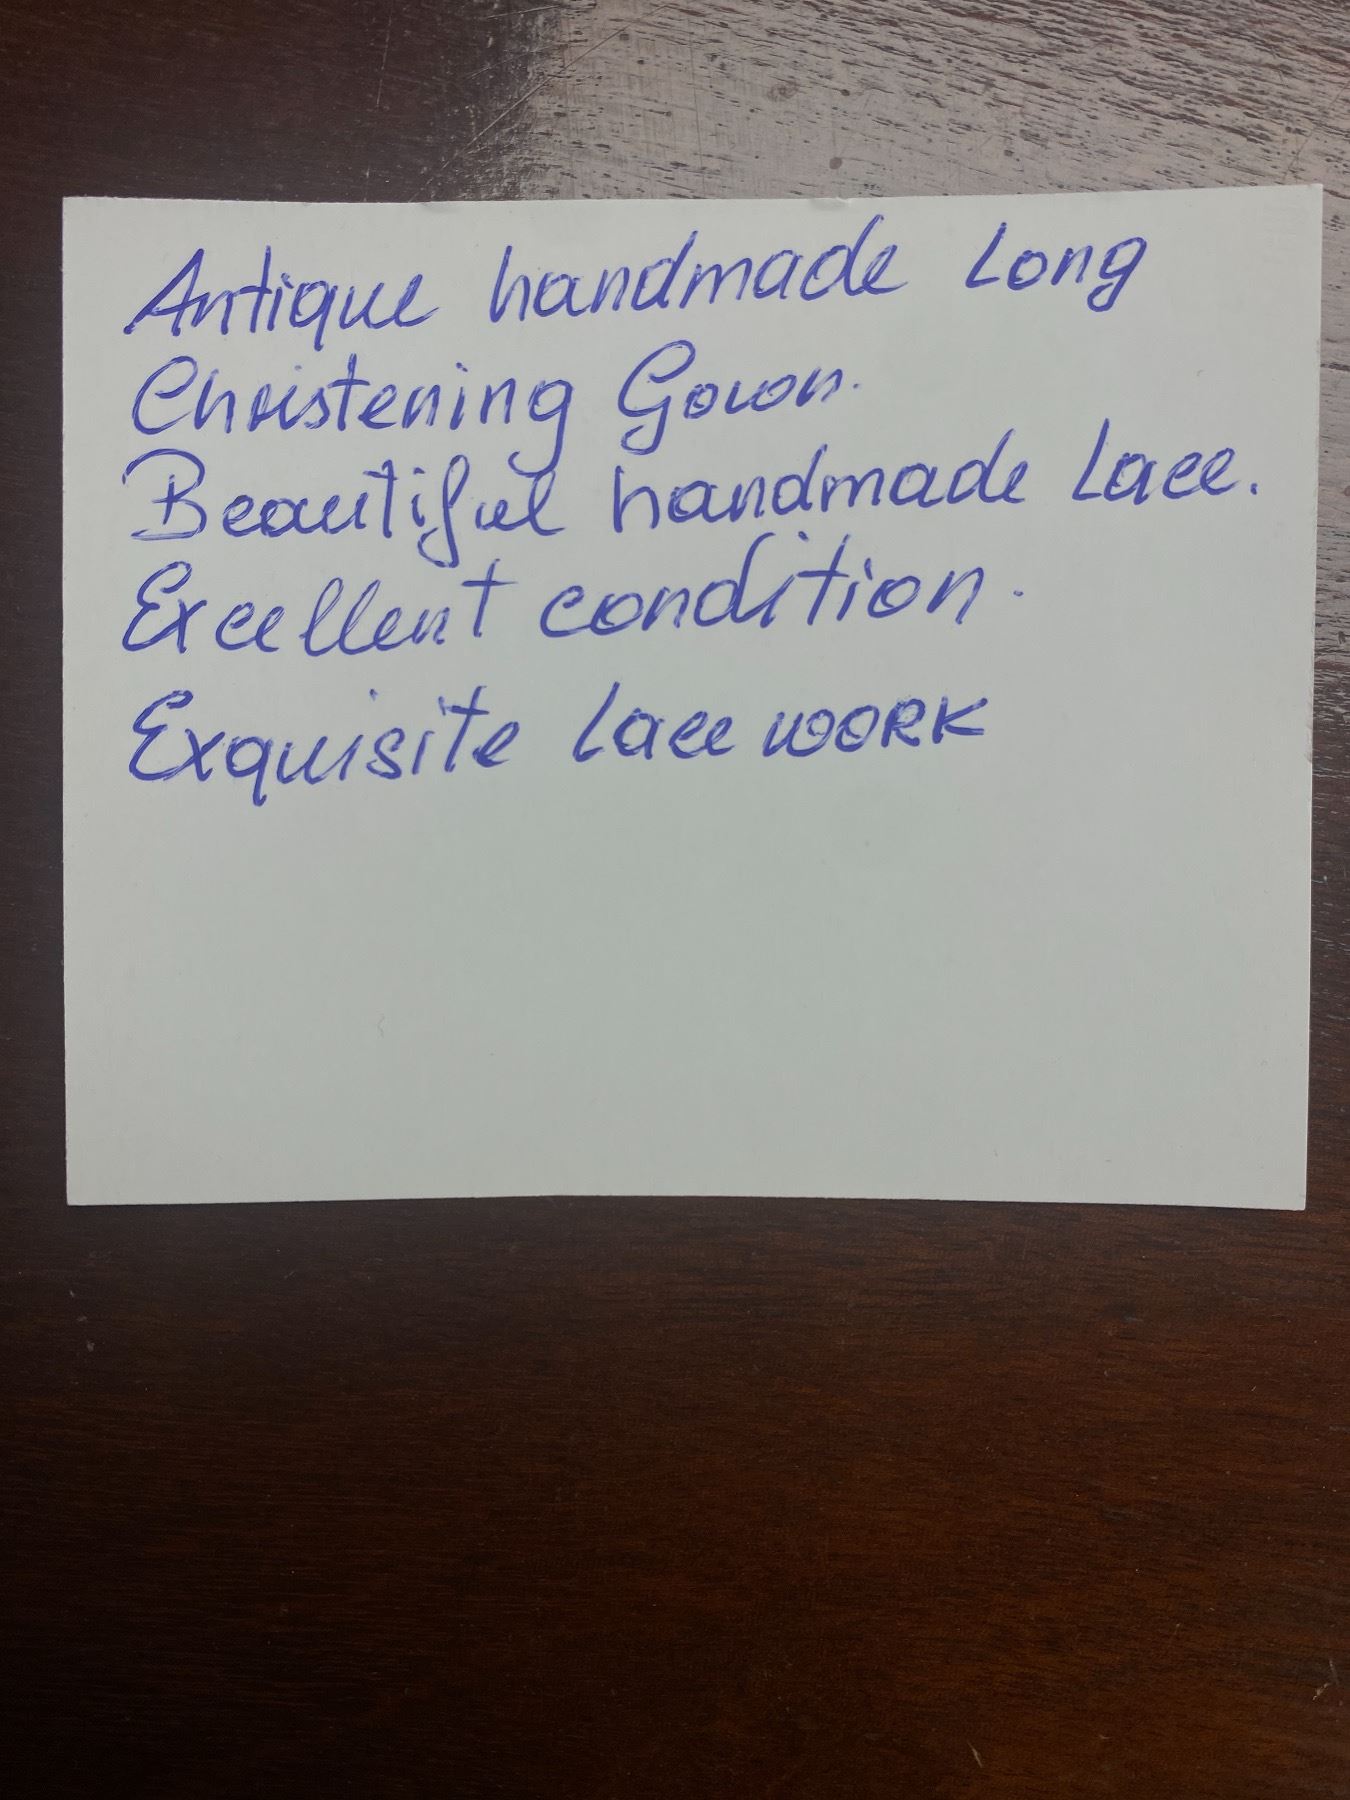 Antique handmade Long
Christening Gown.
Beautiful handmade Lace.
Excellent condition.
Exquisite lace work